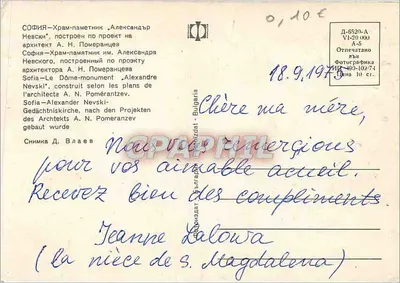 0,10 €
СОФИЯ—Храм-паметник „Александър
Невски", построен по проект на
архитект А. Н. Померанцев
София—Храм-памятник им. Александра
Невского, построенный по проекту
архитектора А. Н. Померанцева
Sofia—Le Dôme-monument „Alexandre
Nevski", construit selon les plans de
l'architecte A. N. Pomérantzev.
Sofia—Alexander Nevski-
Gedächtniskirche, nach den Projekten
des Architekts A. N. Pomeranzev
gebaut wurde
Снимка Д. Влаев
Д-6520-А
VI-20 000
А-5
Отпечатано
във
Фотографика
Цена 10 ст.
Bulgaria
18.9.1975
Chère ma mére,
Nous vous remerçions
pour vos aimable acueil.
Recevez bien des compliments
Jeanne Lalowa
(la nièce de S. Magdalena)